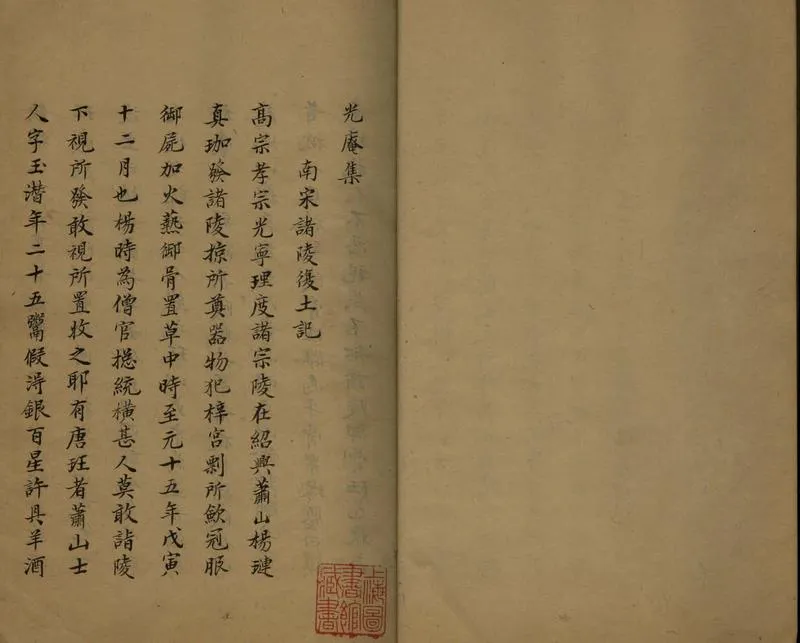 光菴集
南宋諸陵復土記
高宗孝宗光寧理度諸宗陵在紹興蕭山楊璉
真珈發諸陵掠所奠器物犯梓宮剽所歛冠服
御屍加火爇御骨置草中時至元十五年戊寅
十二月也楊時為僧官摠統橫甚人莫敢詣陵
下視所發敢視所置收之耶有唐珏者蕭山士
人字玉潛年二十五鬻假淂銀百星許具羊酒
上海圖書館藏書